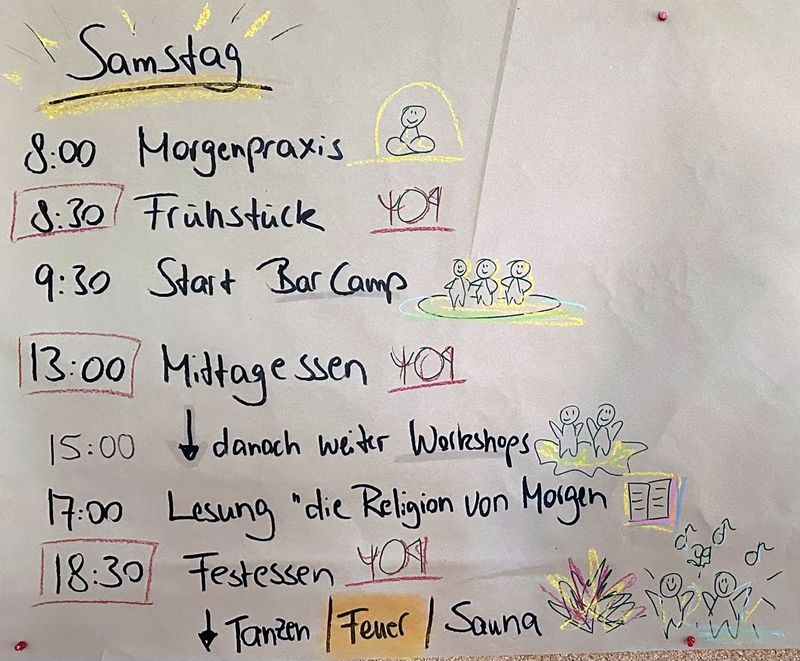 Samstag
8:00 Morgenpraxis
8:30 Frühstück
9:30 Start BarCamp
13:00 Mittagessen
15:00 ↓ danach weiter Workshops
17:00 Lesung "die Religion von Morgen
18:30 Festessen
↓ Tanzen | Feuer | Sauna